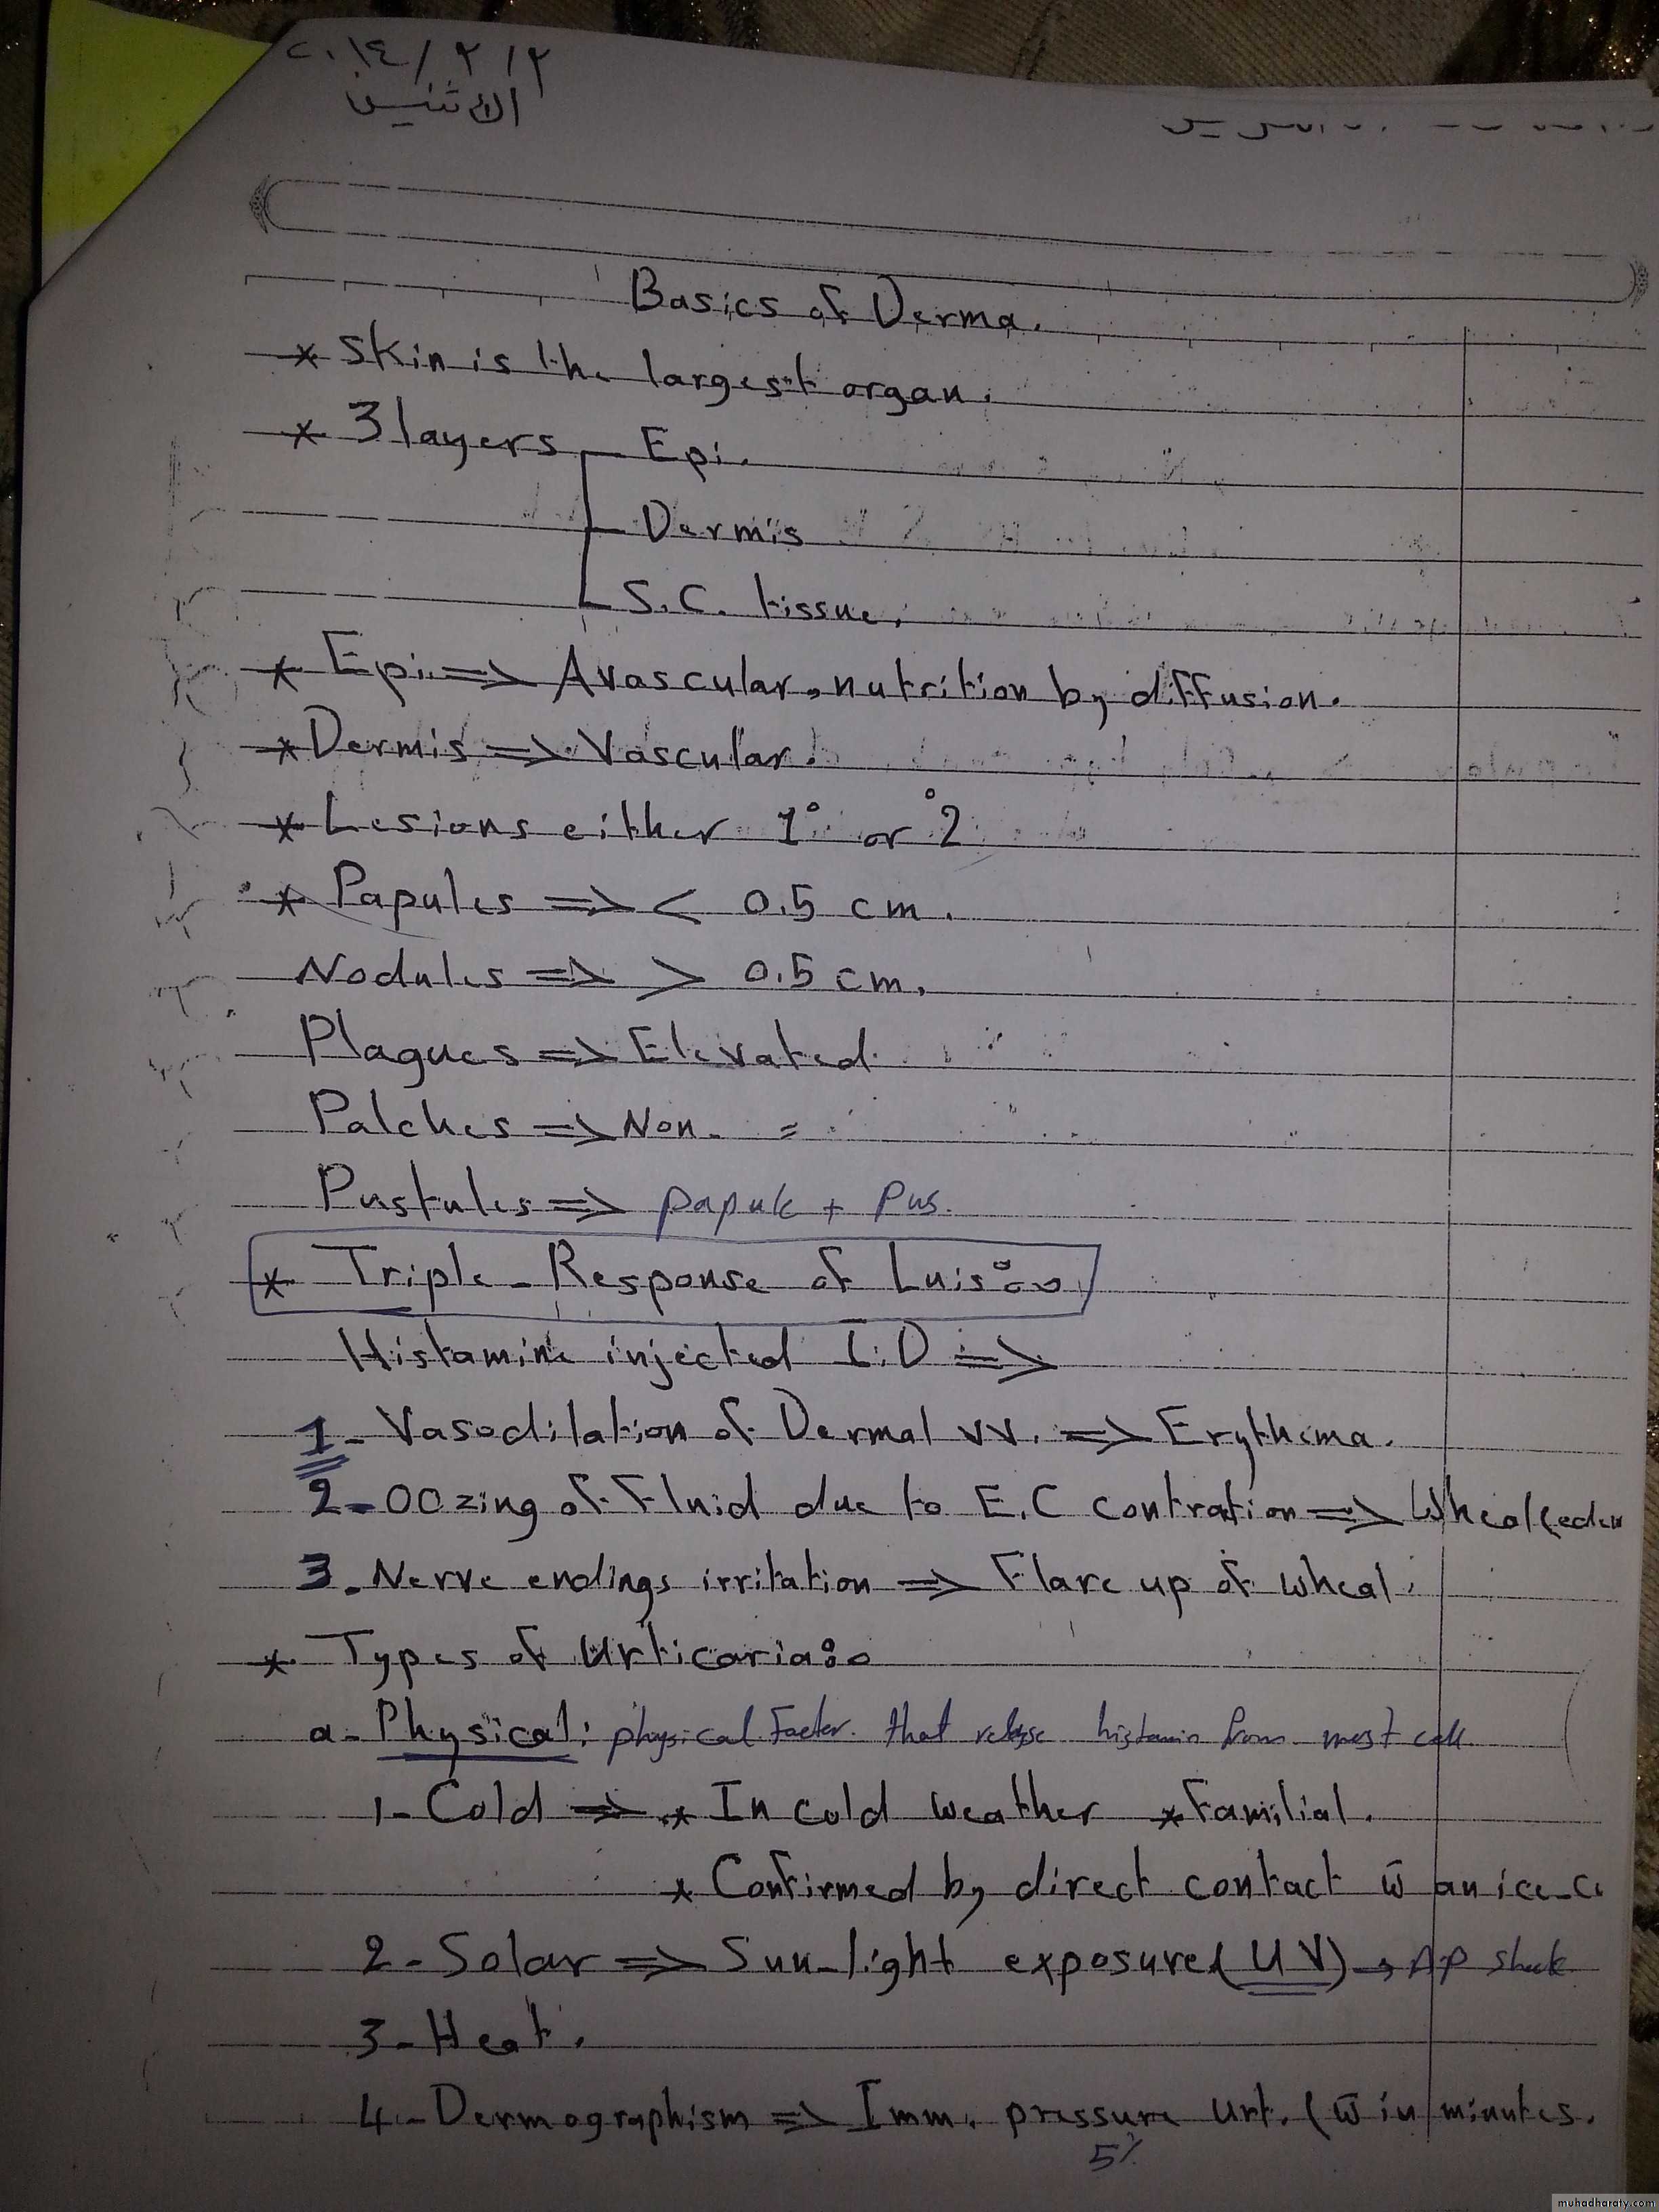 ٢٠١٤/٢/٢
الاثنين
Basics of Derma.
* Skin is the largest organ.
* 3 layers Epi.
Dermis
S.C. tissue.
* Epi. => Avascular, nutrition by diffusion.
* Dermis => Vascular.
* Lesions either 1° or °2
* Papules => < 0.5 cm.
Nodules => > 0.5 cm.
Plaques => Elevated
Patches => Non. =
Pustules => papule + pus.
* Triple-Response of Luis
Histamine injected I.D =>
1- Vasodilation of Dermal vv. => Erythema.
2- OOzing of Fluid due to E.C contration => Wheal
3. Nerve endings irritation => Flare up of wheal.
* Types of Urticaria
a- Physical: physical Factor. that release histamin from mast cell
1- Cold => * In cold weather * Familial.
* Confirmed by direct contact w̄ an ice-
2- Solar => Sun-light exposure (UV) → shock
3- Heat.
4- Dermographism => Imm. pressure Urt. (w̄in minutes.
5%
muhadharaty.com